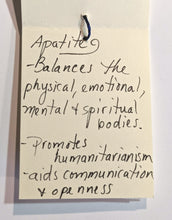 Apatite
-Balances the
physical, emotional,
mental & spiritual
bodies.
-Promotes
humanitarianism
-aids communication
& openness